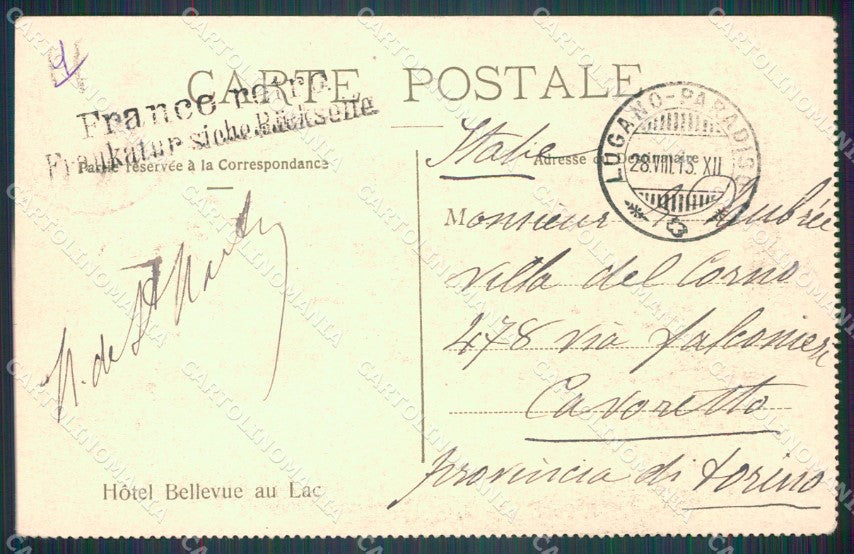 CARTE POSTALE
Franco
Frankatur siehe Rückseite
Partie réservée à la Correspondance
Adresse du Destinataire
LUGANO-PARADISO
28.VIII.13. XII
Italie
Monsieur
Villa del Corno
478 via falconieri
Cavoretto
provincia di torino
N. de St
Hôtel Bellevue au Lac
CARTOLINOMANIA